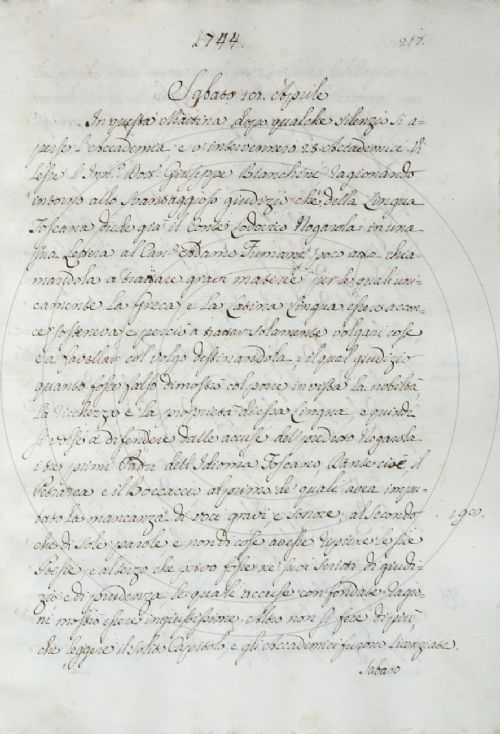 1744.
217.
Sabato 11. Aprile
In questa Mattina dopo qualche silenzio si a-
perse l'Accademia e v'intervennero 23 Accademici. Vi
lesse l'Inn. Dott. Giuseppe Bianchini ragionando
intorno allo svantaggioso giudizio che della Lingua
Toscana diede già il Conte Lodovico Nogarola in una
sua Lettera al Can. Adamo Fumani poco atta chia-
mandola a trattare gravi materie per le quali uni-
camente la Greca e la Latina Lingua essere accon-
ce sosteneva e perciò a trattar solamente volgari cose
e a favellar col volgo destinandola, il qual giudizio
quanto fosse falso dimostrò col porre in vista la nobiltà
la ricchezza e la proprietà di essa Lingua, e quindi
si volse a difendere dalle accuse del predetto Nogarola
i tre primi Padri dell'Idioma Toscano Dante cioè il
Petrarca e il Boccaccio al primo de' quali avea impu-
tato la mancanza di voci gravi e sonore, al secondo
che di sole parole e non di cose avesse ripiene le sue
Poesie, e al terzo che privo fosse ne' suoi scritti di giudi-
zio e di prudenza, le quali accuse con fondate ragio-
ni mostrò essere ingiustissime. Altro non si fece di più
che leggere il solito Capitolo, e gli Accademici furono licenziati.
Sabato